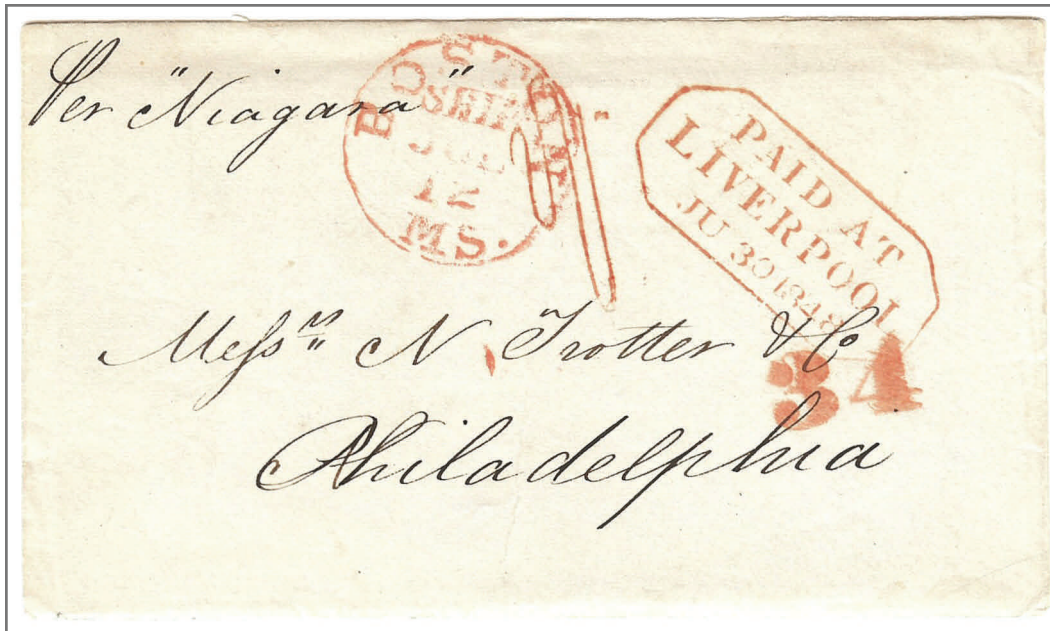 Per "Niagara"
BOSTON
SHIP
JUL
12
MS.
1/
PAID AT
LIVERPOOL
JU 30 1848
34
Messrs N Trotter & Co
Philadelphia